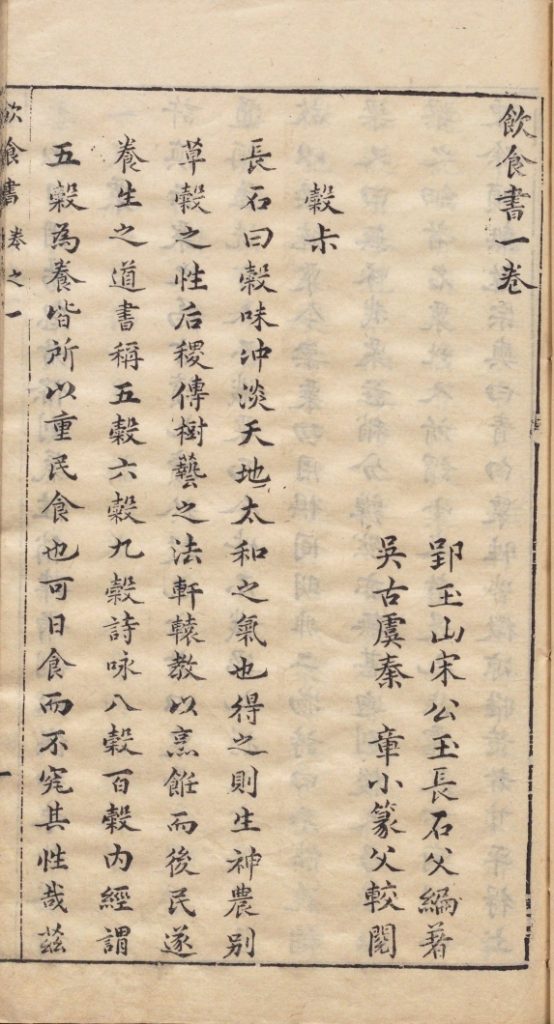 飲食書一卷
郢玉山宋公玉長石父編著
吳古虞秦　章小篆父較閱
榖尗
長石曰榖味冲淡天地太和之氣也得之則生神農别
草榖之性后稷傳樹藝之法軒轅教以烹餁而後民遂
養生之道書稱五榖六榖九榖詩咏八榖百榖内經謂
五榖為養皆所以重民食也可日食而不究其性哉茲
飲食書　卷之一